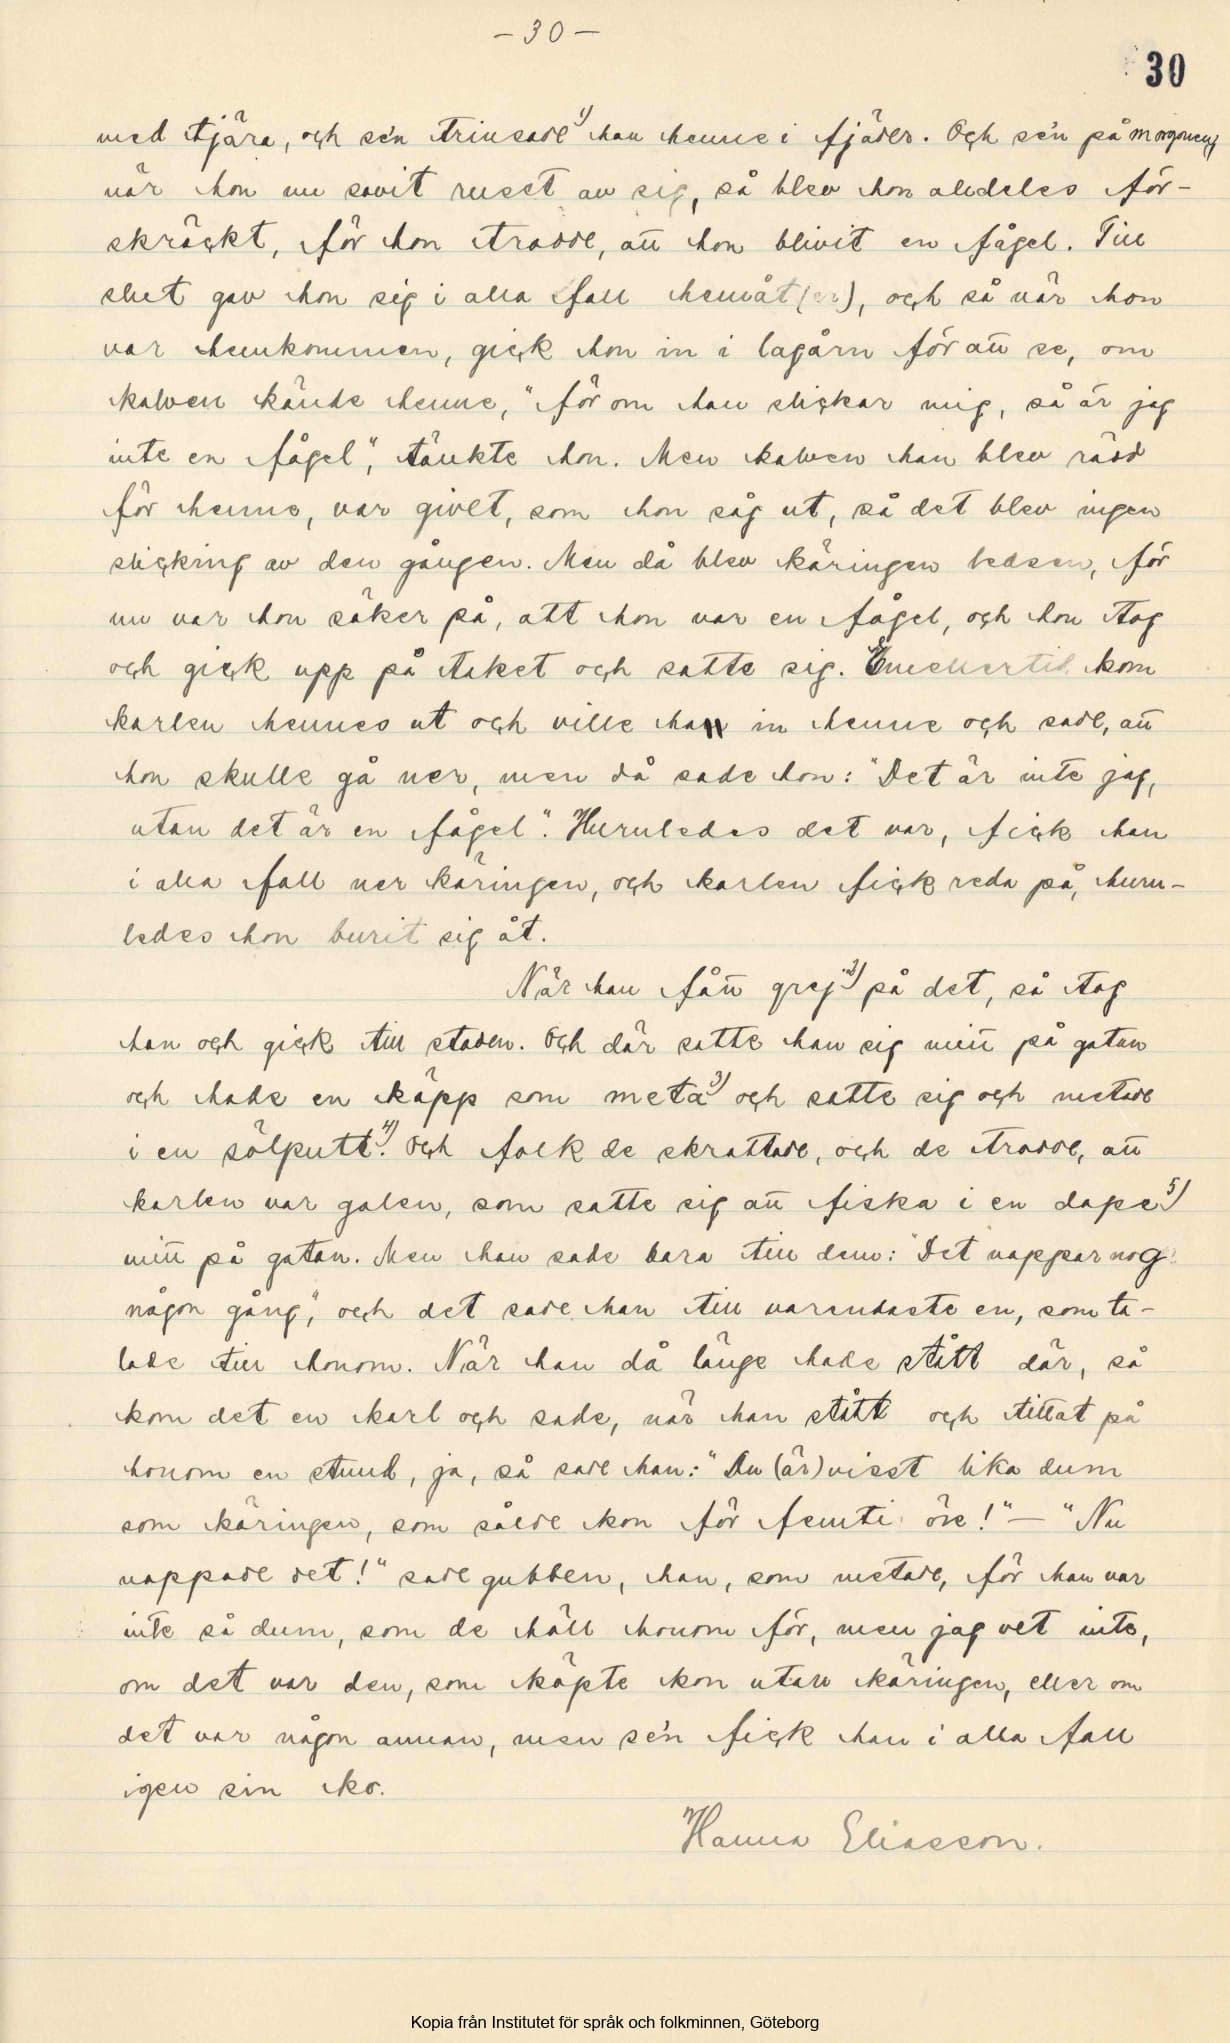 – 30 –
30
med tjära, och sen trinsade¹⁾ han henne i fjäder. Och sen på morgonen,
när hon nu sovit ruset av sig, så blev hon alldeles för-
skräckt, för hon trodde, att hon blivit en fågel. Till
slut gav hon sig i alla fall hemåt(er), och så när hon
var hemkommen, gick hon in i lagårn för att se, om
kalven kände henne, "för om han slickar mig, så är jag
inte en fågel", tänkte hon. Men kalven han blev rädd
för henne, var givet, som hon såg ut, så det blev ingen
slickning av den gången. Men då blev käringen ledsen, för
nu var hon säker på, att hon var en fågel, och hon tog
och gick upp på taket och satte sig. Emellertid kom
karlen hennes ut och ville han in henne och sade, att
hon skulle gå ner, men då sade hon: "Det är inte jag,
utan det är en fågel". Huruledes det var, fick han
i alla fall ner käringen, och karlen fick reda på, huru-
ledes hon burit sig åt.
När han fått grej²⁾ på det, så tog
han och gick till staden. Och där satte han sig mitt på gatan
och hade en käpp som meta³⁾ och satte sig och metade
i en sölputt⁴⁾. Och folk de skrattade, och de trodde, att
karlen var galen, som satte sig att fiska i en dape⁵⁾
mitt på gatan. Men han sade bara till dem: "Det nappar nog
någon gång", och det sade han till varendaste en, som ta-
lade till honom. När han då länge hade stått där, så
kom det en karl och sade, när han stått och tittat på
honom en stund, ja, så sade han: "Du (är) visst lika dum
som käringen, som sålde kon för femti öre!" – "Nu
nappade det!" sade gubben, han, som metade, för han var
inte så dum, som de höll honom för, men jag vet inte,
om det var den, som köpte kon utav käringen, eller om
det var någon annan, men sen fick han i alla fall
igen sin ko.
Hanna Eliasson.
Kopia från Institutet för språk och folkminnen, Göteborg